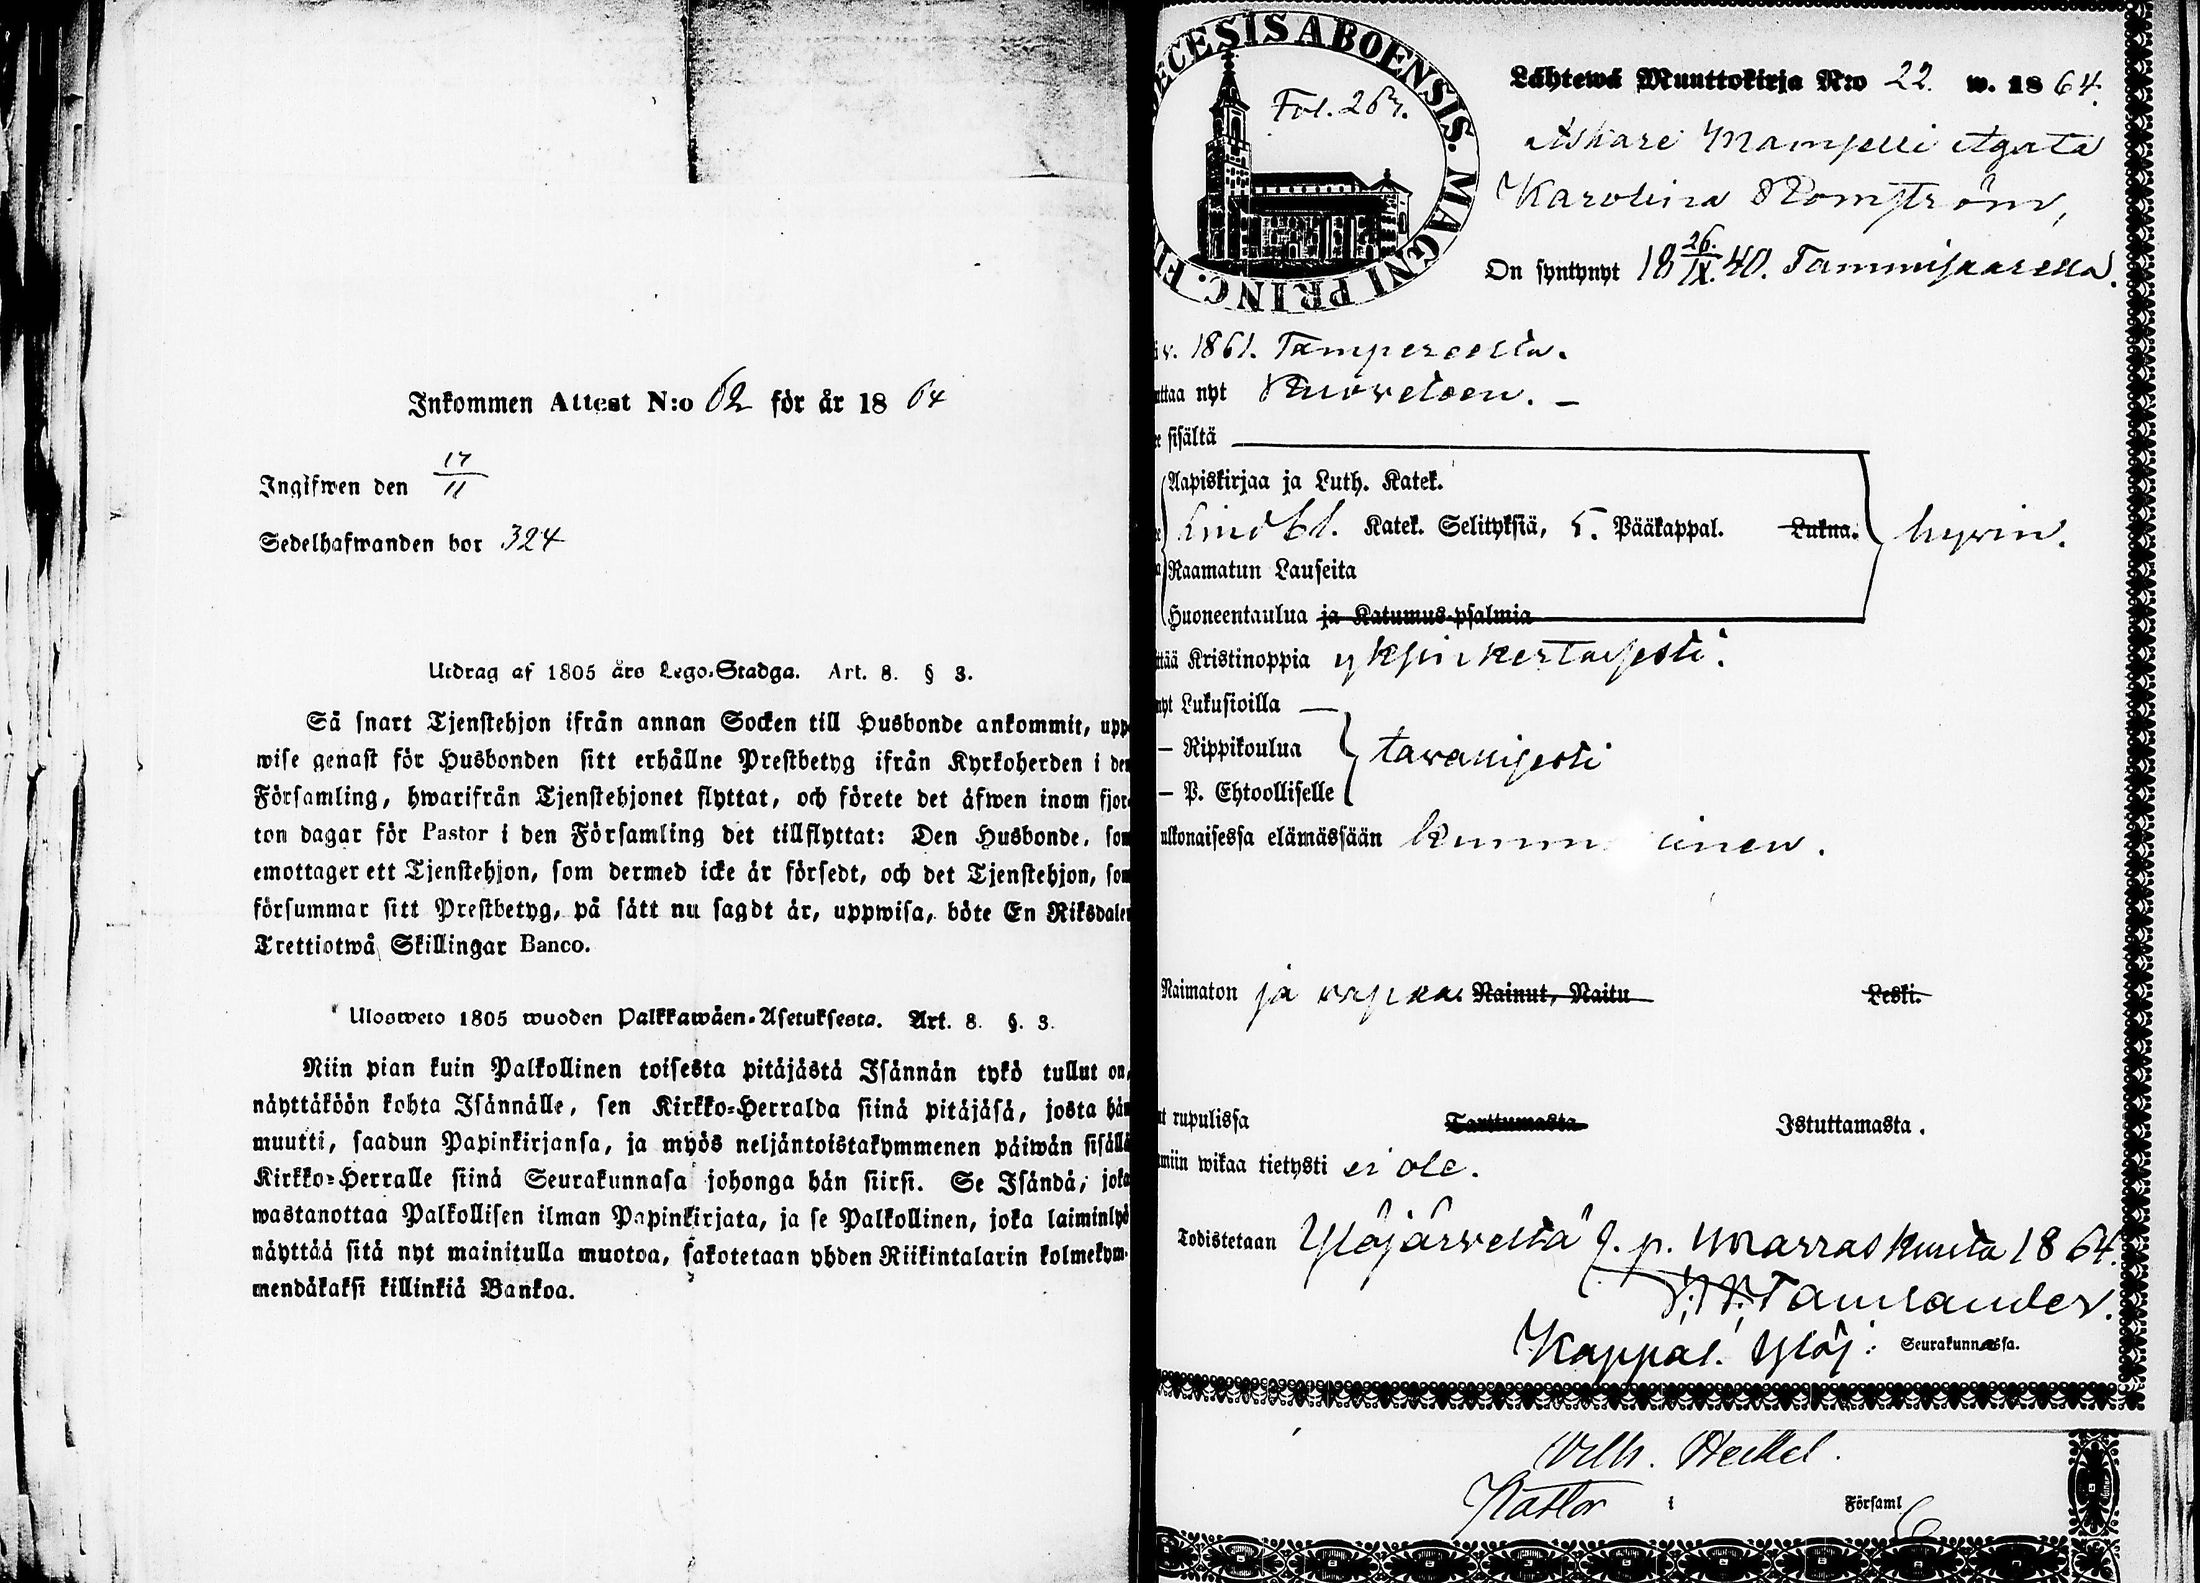 Inkommen Attest N:o 62 för år 18 64
Ingifwen den 17/11
Sedelhafwanden bor 324
Utdrag af 1805 års Lego-Stadga. Art. 8. § 3.
Så snart Tjenstehjon ifrån annan Socken till Husbonde ankommit, upp
wise genast för Husbonden sitt erhållne Prestbetyg ifrån Kyrkoherden i den
Församling, hwarifrån Tjenstehjonet flyttat, och förete det äfwen inom fjor-
ton dagar för Pastor i den Församling det tillflyttat: Den Husbonde, som
emottager ett Tjenstehjon, som dermed icke är försedt, och det Tjenstehjon, som
försummar sitt Prestbetyg, på sätt nu sagdt är, uppwisa, böte En Riksdaler
Trettiotwå Skillingar Banco.
Ulosweto 1805 wuoden Palkkawäen-Asetuksesta. Art. 8. §. 3.
Niin pian kuin Palkollinen toisesta pitäjästä Isännän tykö tullut on,
näyttäköön kohta Isännälle, sen Kirkko-Herralda siinä pitäjäsä, josta hän
muutti, saadun Papinkirjansa, ja myös neljäntoistakymmenen päiwän sisällä
Kirkko-Herralle siinä Seurakunnasa johonga hän siirsi. Se Isändä, joka
wastanottaa Palkollisen ilman Papinkirjata, ja se Palkollinen, joka laiminlyö
näyttää sitä nyt mainitulla muotoa, sakotetaan yhden Riikintalarin kolmekym-
mendäkaksi killinkiä Bankoa.
ECESIS ABOENSIS. MAGNI PRINC. FI
Fol. 267.
Lähtewä Muuttokirja N:o 22. w. 18 64.
Mamselli Agata
Karolina Romström,
On syntynyt 18 26./IX. 40. Tammisaaressa.
v. 1861. Tampereelta.
ttaa nyt Ruoveteen. –
sisältä
Aapiskirjaa ja Luth. Katek.
Lindbl. Katek. Selityksiä, 5. Pääkappal. Lukua. hyvin.
Raamatun Lauseita
Huoneentaulua ja Katumus-psalmia
ttää Kristinoppia yksinkertaisesti.
nyt Lukusioilla —
— Rippikoulua tavallisesti
— P. Ehtoolliselle
ulkonaisessa elämässään
Naimaton ja vapaa. Nainut, Naitu Leski.
ut rupulissa Tarttumasta Istuttamasta.
miin wikaa tietysti ei ole.
Todistetaan Ylöjärveltä 9. p. Marraskuuta 1864.
Tamlander.
Kappal. Ylöj: Seurakunnassa.
Wilh. Heckel.
Pastor i Församl